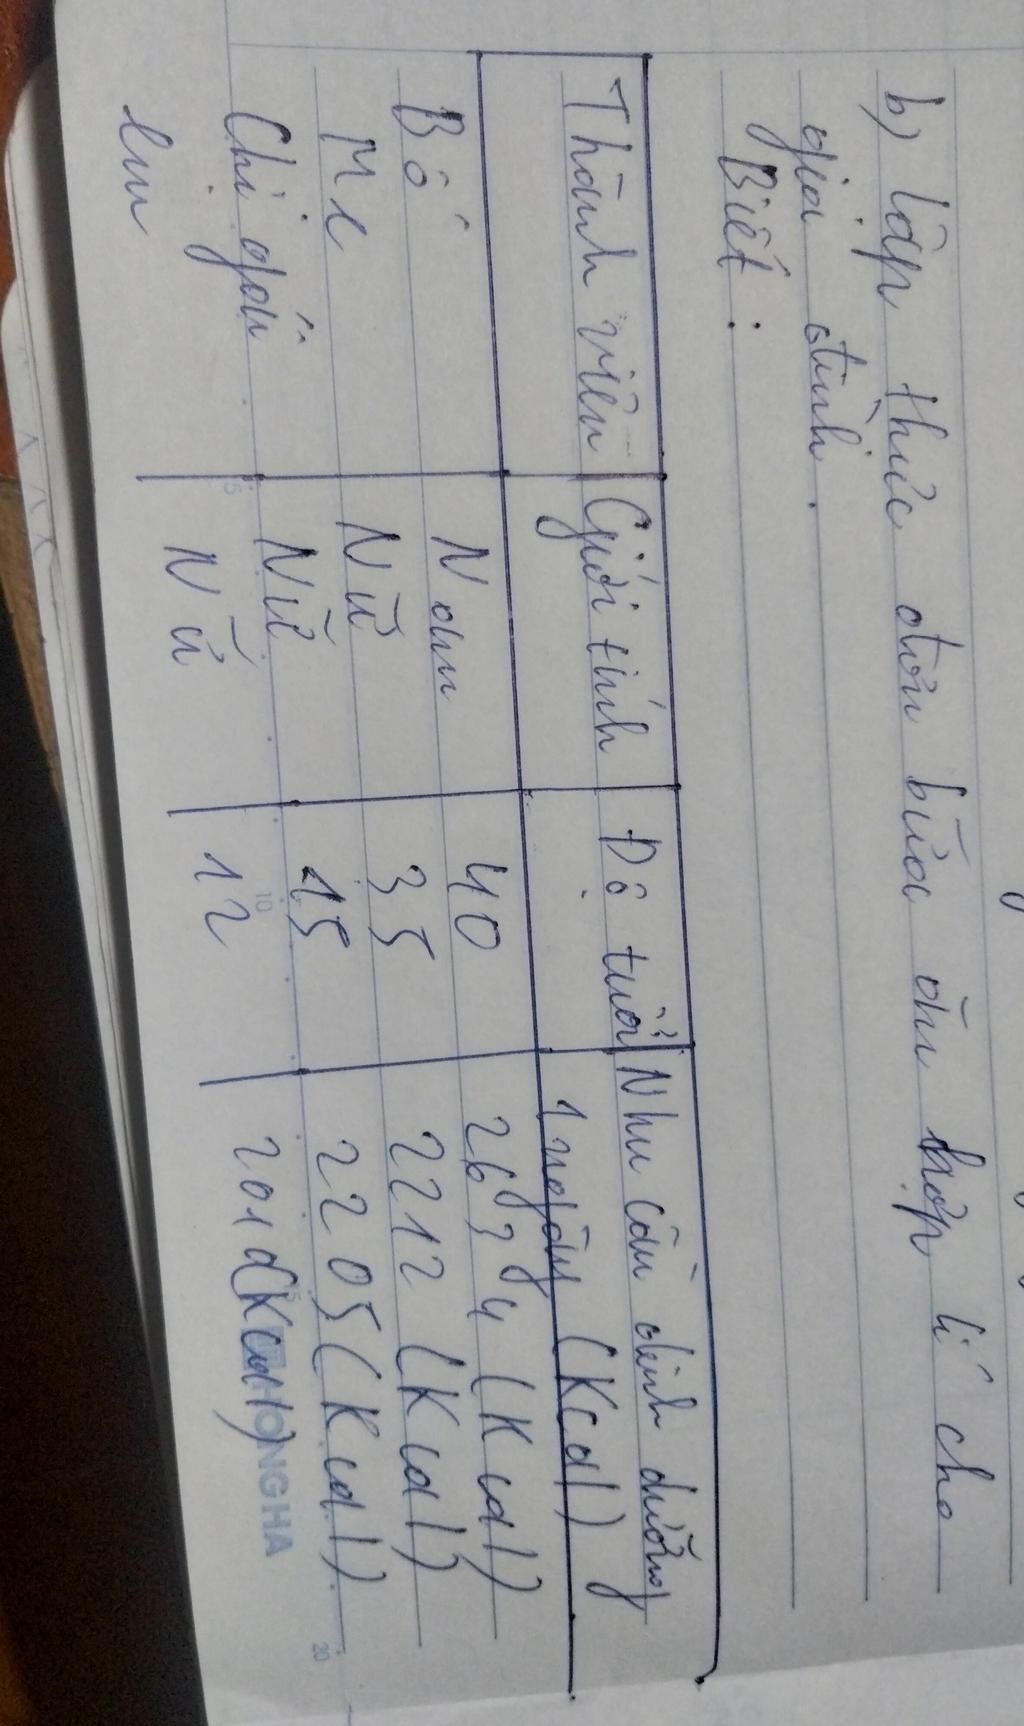 b) Lập thức đơn bữa ăn hợp lí cho
gia đình.
Biết:
Thành viên Giới tính Độ tuổi Nhu cầu dinh dưỡng
1 ngày (Kcal)
Bố Nam 40 2634 (Kcal)
Mẹ Nữ 35 2212 (Kcal)
Chị gái Nữ 15 2205 (Kcal)
Em Nữ 12 (Kcal)
HONG HA
5
10
15
20